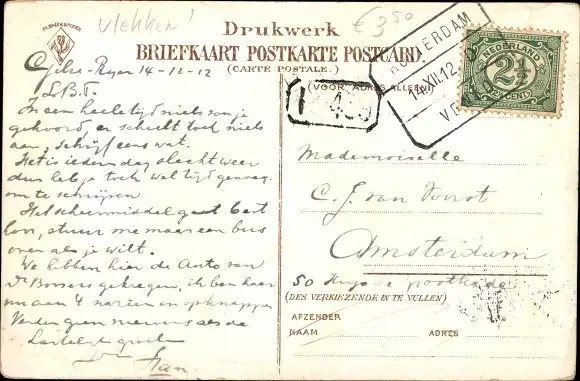 vlekken!
€ 3 50
Drukwerk
BRIEFKAART POSTKARTE POSTCARD
(CARTE POSTALE.)
(VOOR ADRES ALLEEN)
14 XII.12
NEDERLAND
2½
CENT
14-12-12
In een heele tijd niets van je
gehoord, er scheelt toch niets
aan, schrijf eens wat.
Het is iederen dag slecht weer
dus heb je toch wel tijd genoeg
om te schrijven
Het scheermiddel gaat best
hoor, stuur me maar een bus
over als je wilt.
We hebben hier de Auto van
Dr gekregen, ik ben haar
nu aan 't en opknappen
Verder geen nieuws als de
hartelijke groet
Han.
Mademoiselle
C. J. van
Amsterdam
50
(DES VERKIEZENDE IN TE VULLEN)
AFZENDER
NAAM ADRES